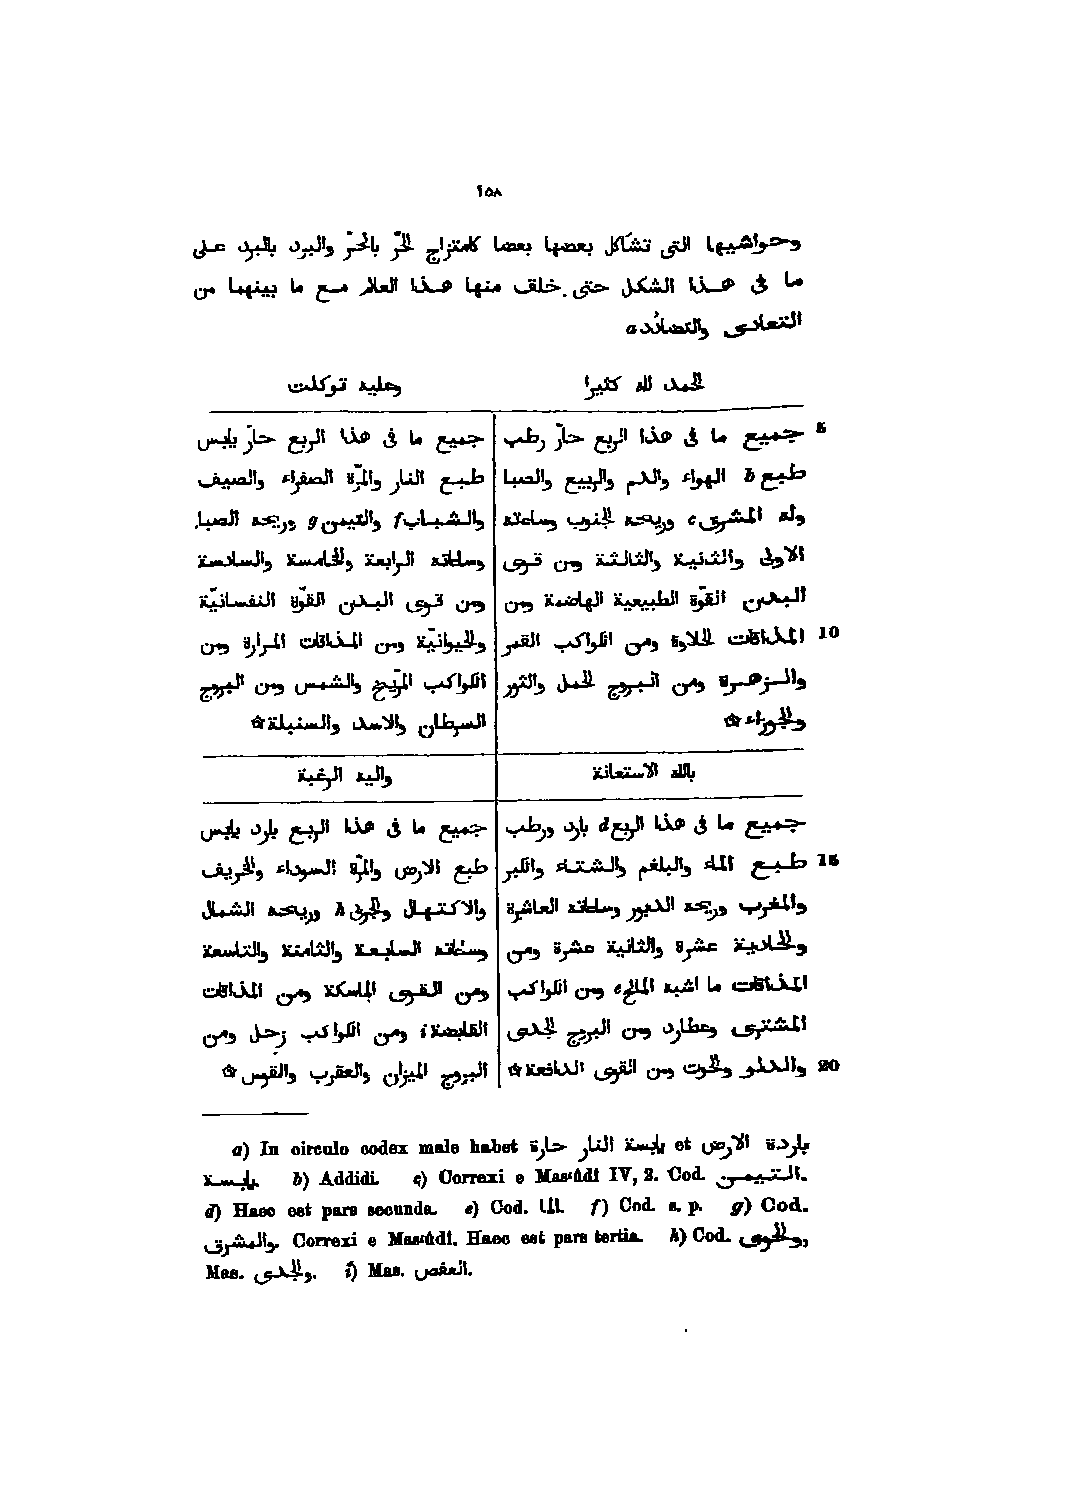 ١٥٨
وحواشيها التى تشاكل بعضها بعضا كامتزاج الحرّ بالحرّ والبرد بالبرد على
ما فى هذا الشكل حتى خلق منها هذا العالم مع ما بينهما من
التعادى والتضادد a
الحمد لله كثيرا
5 جميع ما فى هذا الربع حارّ رطب
طبع b الهواء والدم والربيع والصبا
وله المشرق c وريحه الجنوب وساعاته
الاولى والثانية والثالثة ومن قوى
البدن القوّة الطبيعية الهاضمة ومن
10 المذاقات الحلاوة ومن الكواكب القمر
والزهرة ومن البروج الحمل والثور
والجوزاء ☆
وعليه توكلت
جميع ما فى هذا الربع حارّ يابس
طبع النار والمرّة الصفراء والصيف
والشباب f والتيمن g وريحه الصبا
وساعاته الرابعة والخامسة والسادسة
ومن قوى البدن القوّة النفسانيّة
والحيوانيّة ومن المذاقات المرارة ومن
الكواكب المرّيخ والشمس ومن البروج
السرطان والاسد والسنبلة ☆
بالله الاستعانة
جميع ما فى هذا الربع d بارد ورطب
15 طبع الماء والبلغم والشتاء والكبر
والمغرب وريحه الدبور وساعاته العاشرة
والحادية عشرة والثانية عشرة ومن
المذاقات ما اشبه المالح e ومن الكواكب
المشترى وعطارد ومن البروج الجدى
20 والدلو والحوت ومن القوى الدافعة ☆
واليه الرغبة
جميع ما فى هذا الربع بارد يابس
طبع الارض والمرّة السوداء والخريف
والاكتهال والجربى h وريحه الشمال
وساعاته السابعة والثامنة والتاسعة
ومن القوى الماسكة ومن المذاقات
القابضة i ومن الكواكب زحل ومن
البروج الميزان والعقرب والقوس ☆
a) In circulo codex male habet يابسة النار حارة et باردة الارض
يابسة. b) Addidi. c) Correxi e Mas‘ûdî IV, 2. Cod. التيمن.
d) Haec est pars secunda. e) Cod. الما. f) Cod. s. p. g) Cod.
والمشرق. Correxi e Mas‘ûdî. Haec est pars tertia. h) Cod. والحوى,
Mas. والجدى. i) Mas. العفص.